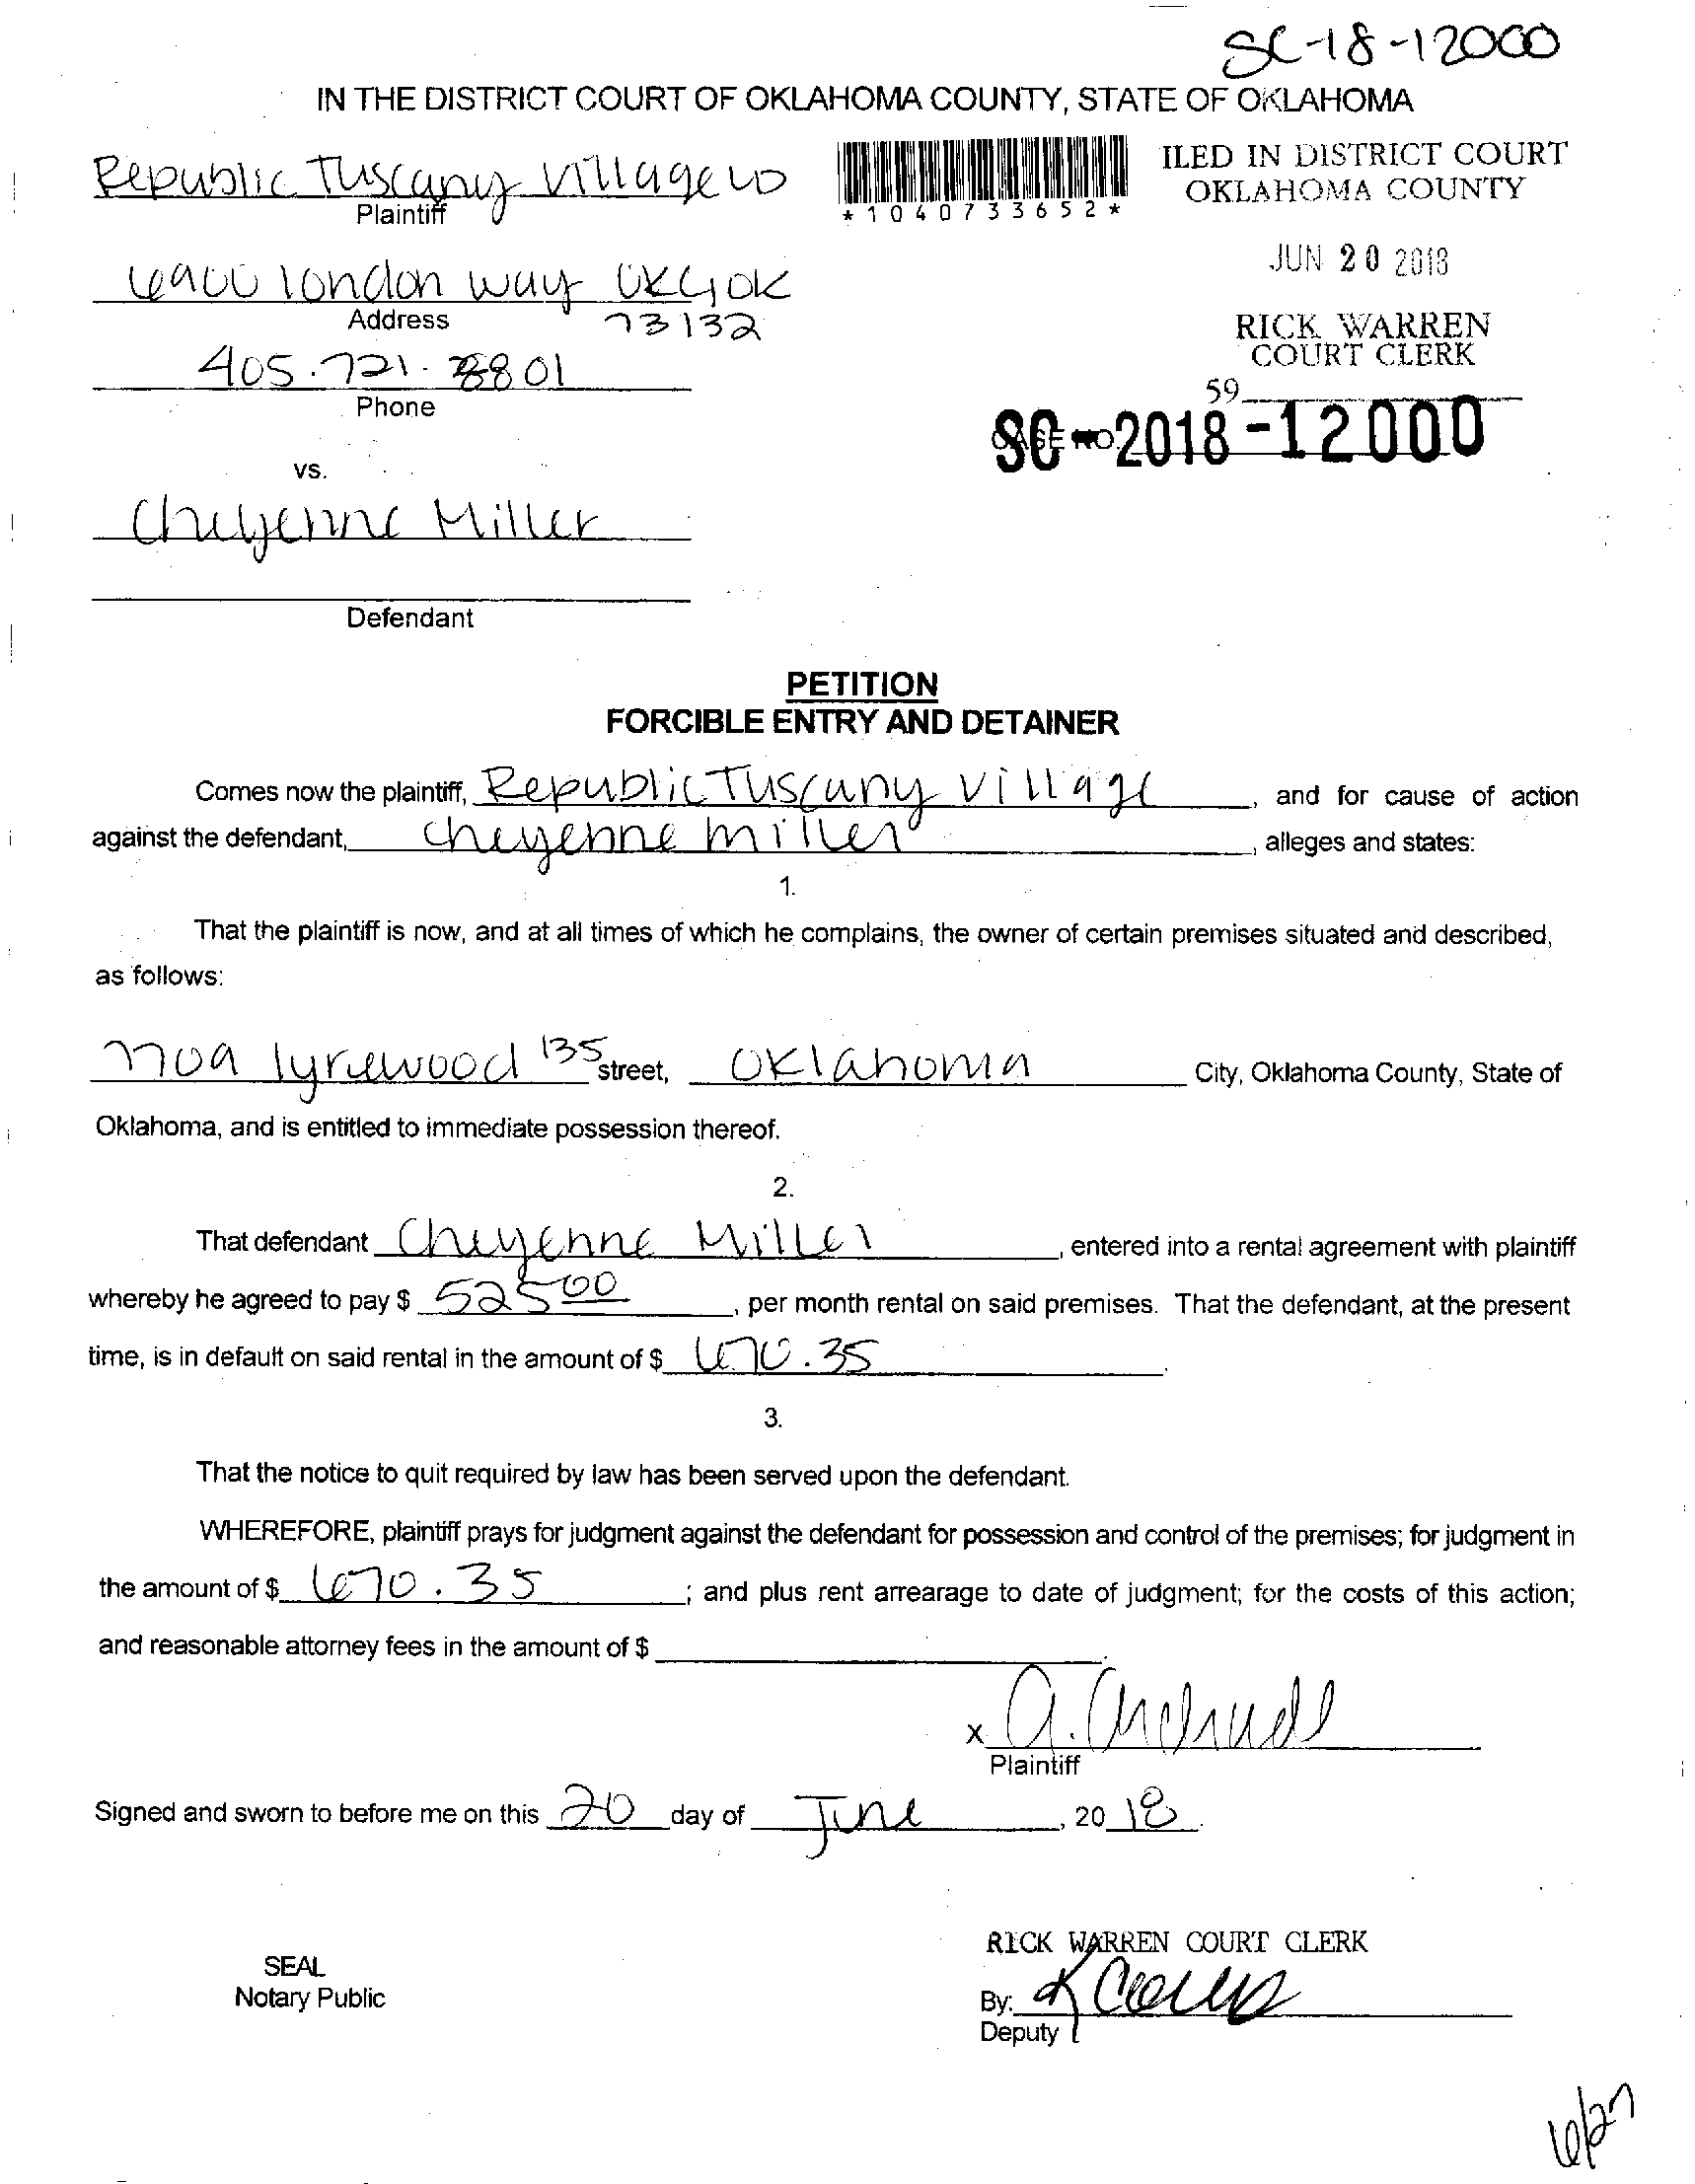 SC-18-12000
IN THE DISTRICT COURT OF OKLAHOMA COUNTY, STATE OF OKLAHOMA
Republic Tuscany Village
Plaintiff
*1040733652*
ILED IN DISTRICT COURT
OKLAHOMA COUNTY
JUN 20 2018
RICK WARREN
COURT CLERK
59
6900 london way OKC, OK
Address
73132
405.721.8801
Phone
SC-2018-12000
vs.
Cheyenne Miller
Defendant
PETITION
FORCIBLE ENTRY AND DETAINER
Comes now the plaintiff, Republic Tuscany Village, and for cause of action
against the defendant, cheyenne miller, alleges and states:
1.
That the plaintiff is now, and at all times of which he complains, the owner of certain premises situated and described,
as follows:
7709 lyrewood 135 street, Oklahoma City, Oklahoma County, State of
Oklahoma, and is entitled to immediate possession thereof.
2.
That defendant Cheyenne Miller, entered into a rental agreement with plaintiff
whereby he agreed to pay $ 525 00, per month rental on said premises. That the defendant, at the present
time, is in default on said rental in the amount of $ 670.35.
3.
That the notice to quit required by law has been served upon the defendant.
WHEREFORE, plaintiff prays for judgment against the defendant for possession and control of the premises; for judgment in
the amount of $ 670.35; and plus rent arrearage to date of judgment; for the costs of this action;
and reasonable attorney fees in the amount of $ .
x
Plaintiff
Signed and sworn to before me on this 20 day of June, 20 18.
SEAL
Notary Public
RICK WARREN COURT CLERK
By:
Deputy
6/27